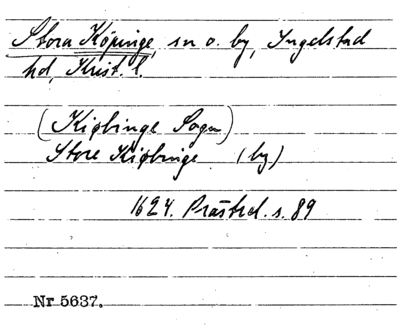 Stora Köpinge, sn o. by, Ingelstad
hd, Krist. l.
(Kiøbinge Sogn)
Store Kiøbinge (by)
1624. Prästrel. s. 89
Nr 5637.